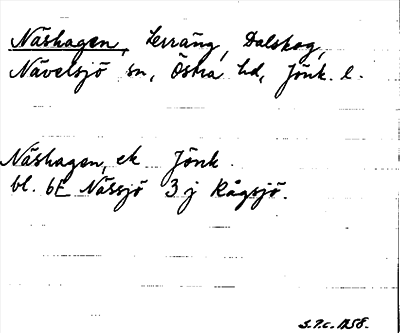 Näshagen, Lerräng, Dalskog,
Nävelsjö sn, Östra hd, Jönk. l.
Näshagen, ek Jönk.
bl. 6E Nässjö 3 j Rågsjö.
1958.